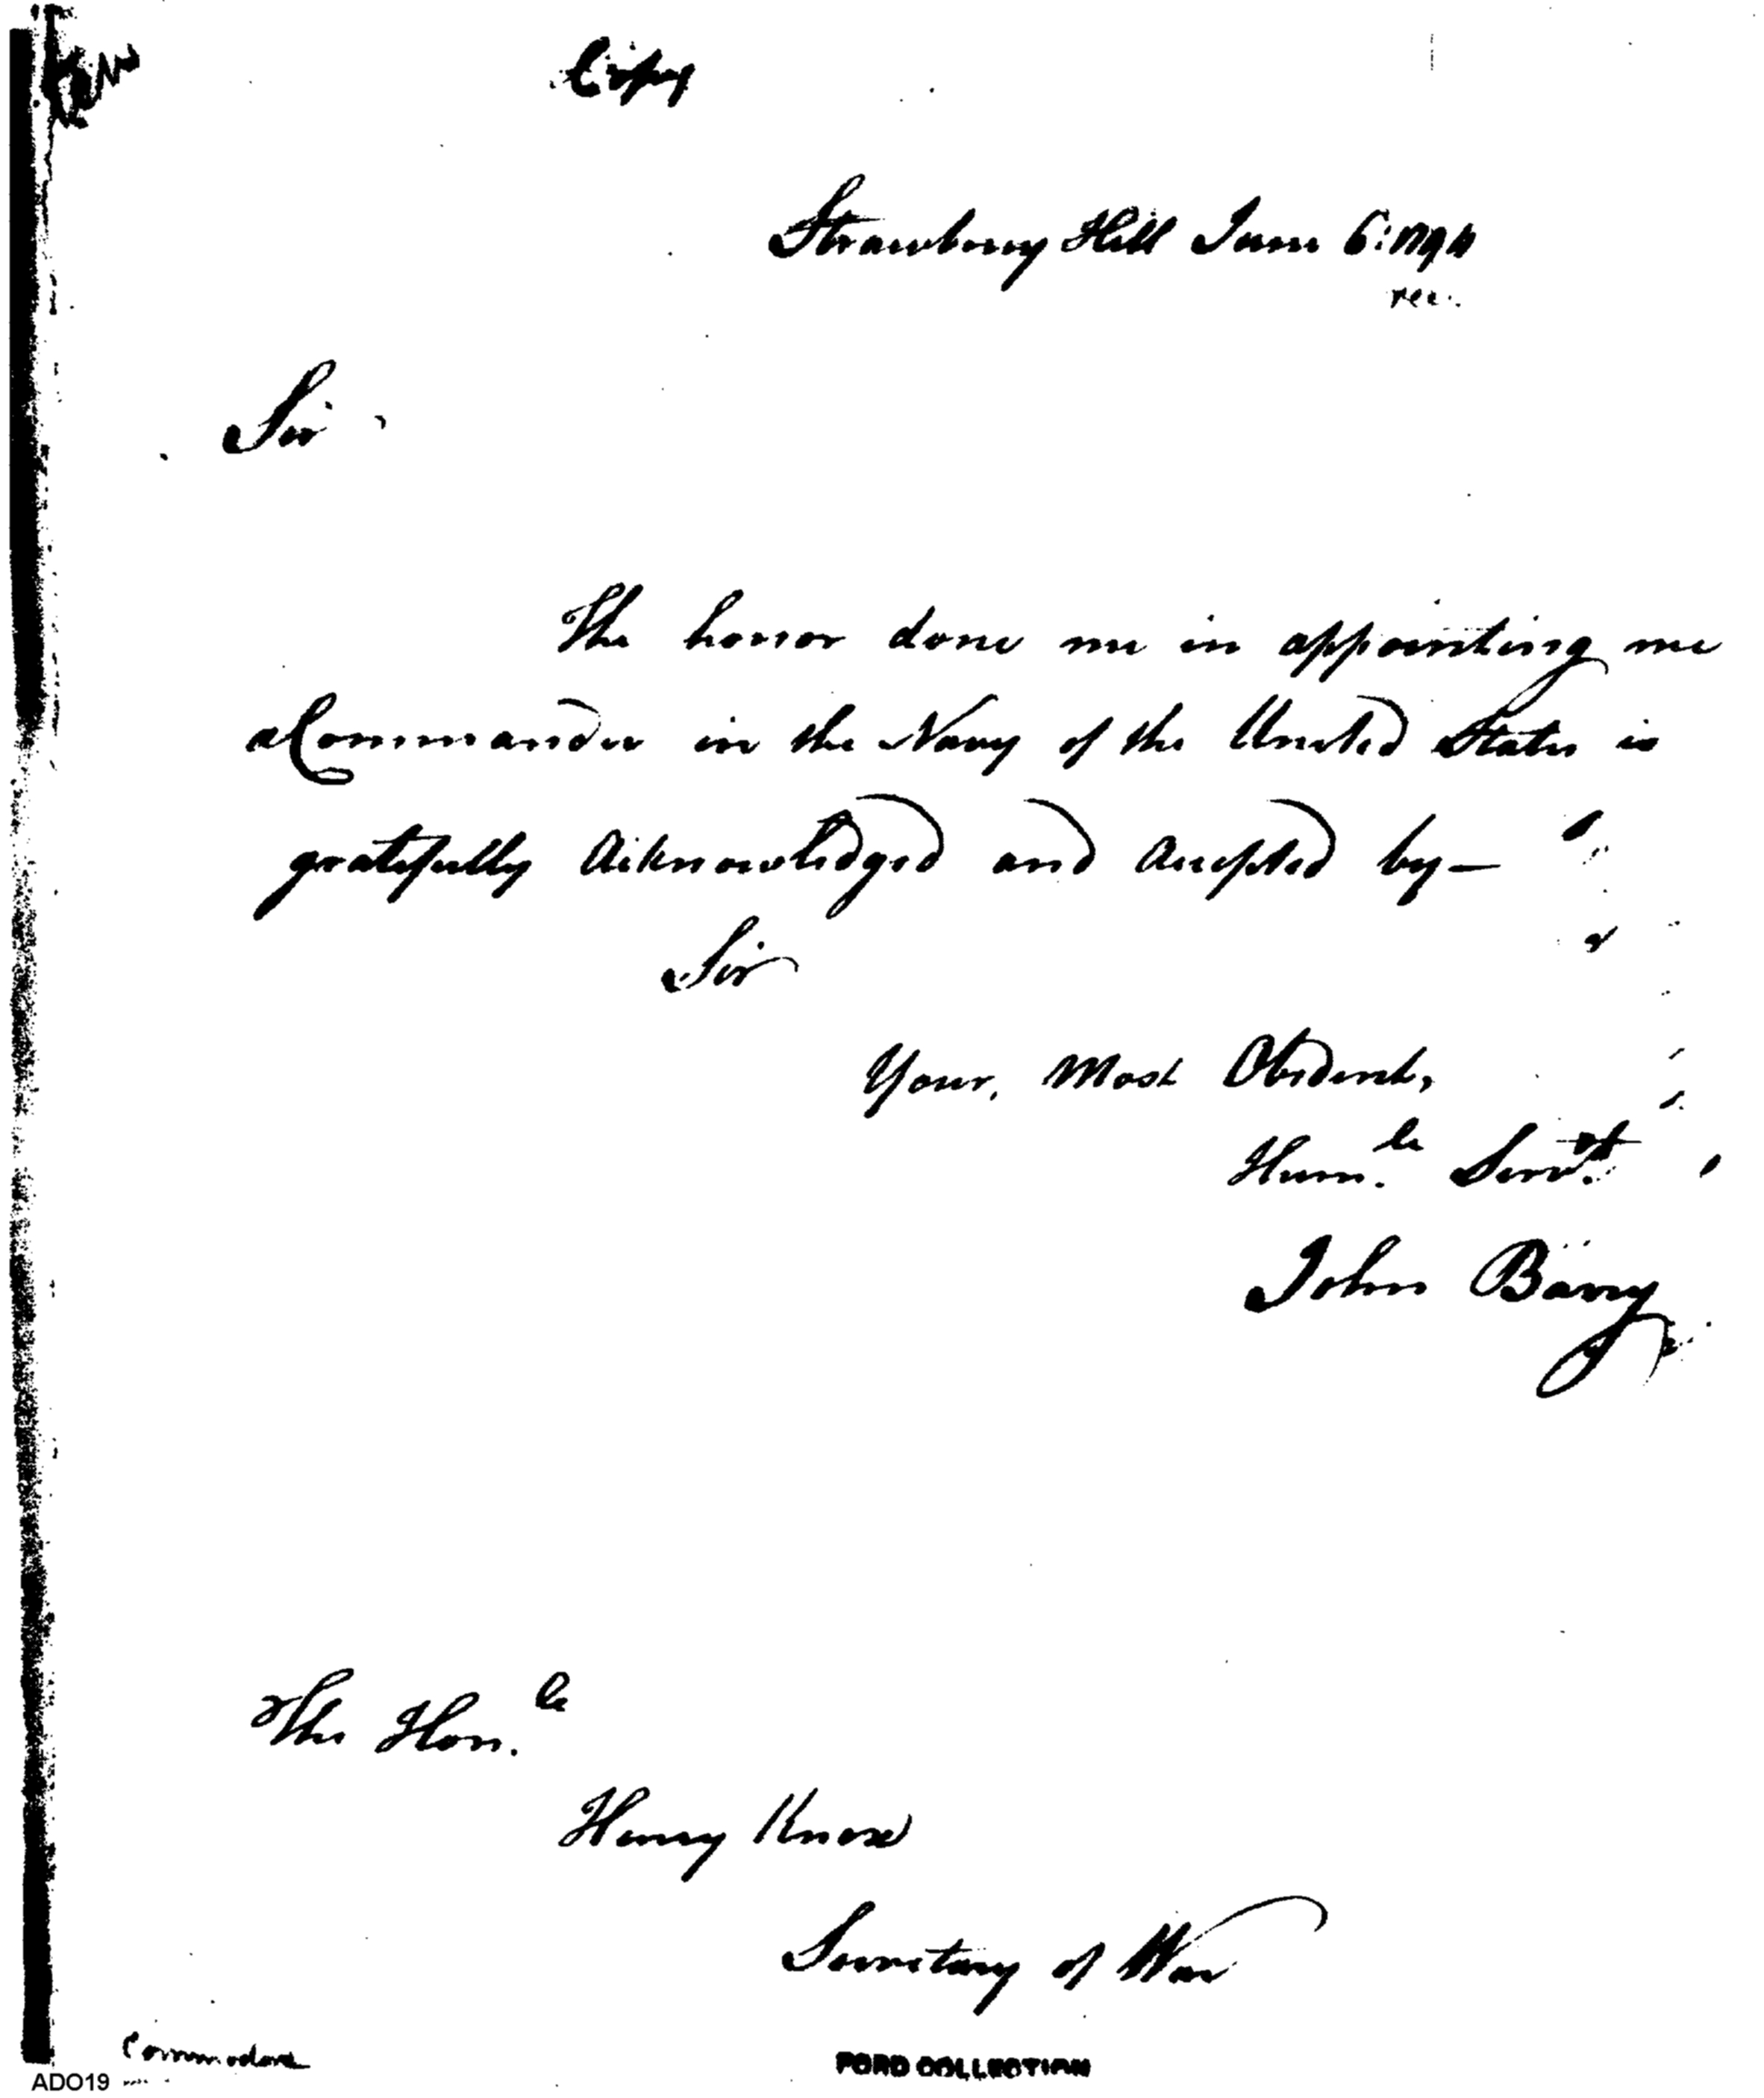 Copy
Strawberry Hill June 6: 1794
Sir
The honor done me in appointing me
a Commander in the Navy of the United States is
gratefully Acknowledged and Accepted by—
Sir
Your, Most Obedient,
Hum.le Servt.
John Barry
The Hon.le
Henry Knox
Secretary of War
Commodore
FORD COLLECTION
ADO19